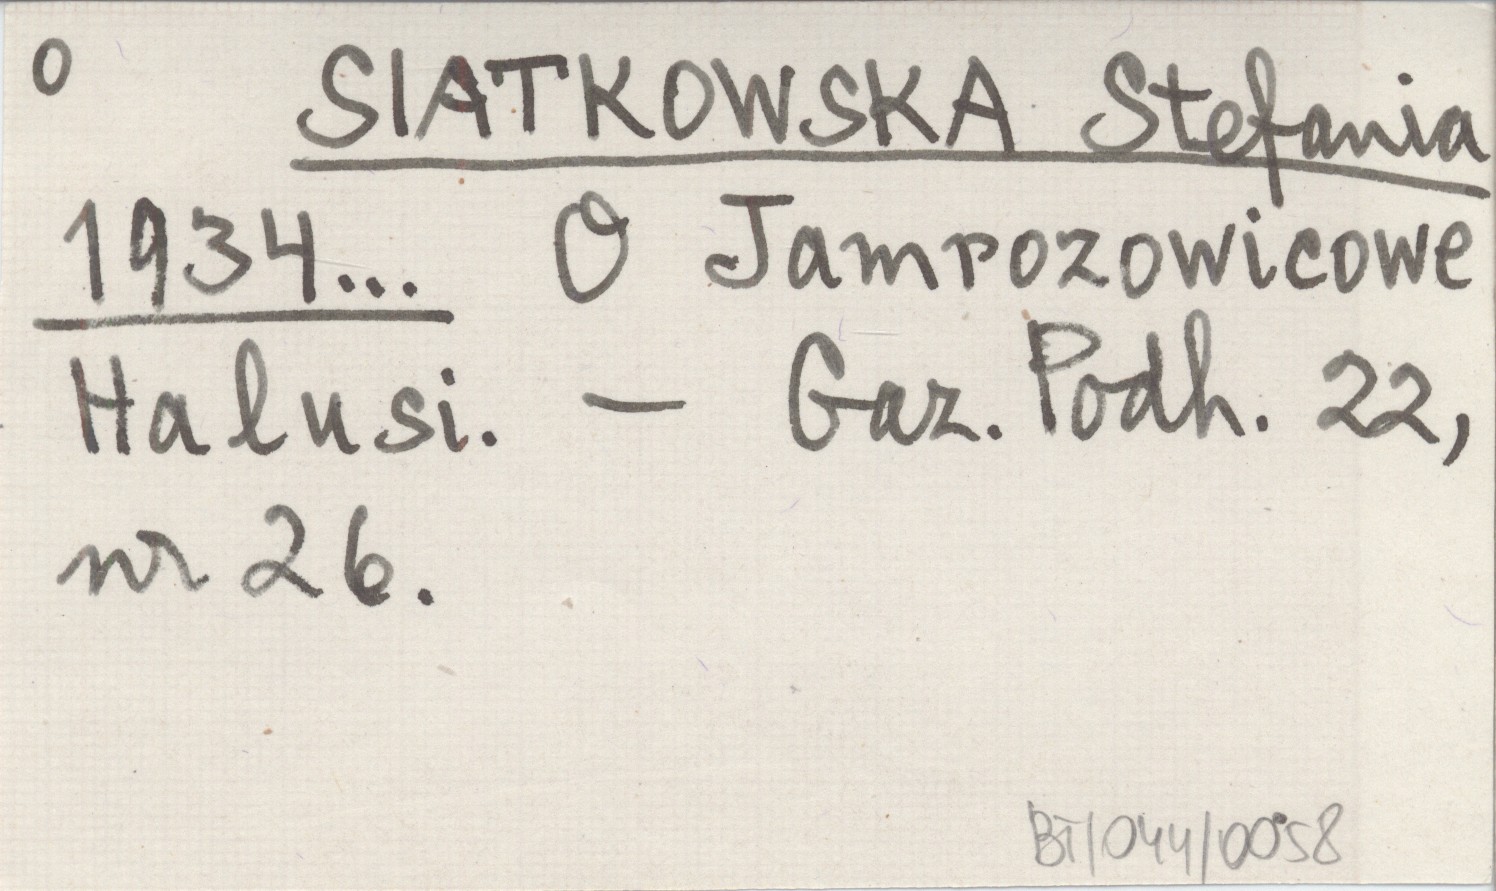 o SIATKOWSKA Stefania
1934... O Jamrozowicowe
Halusi. — Gaz. Podh. 22,
nr 26.
BT/044/0058